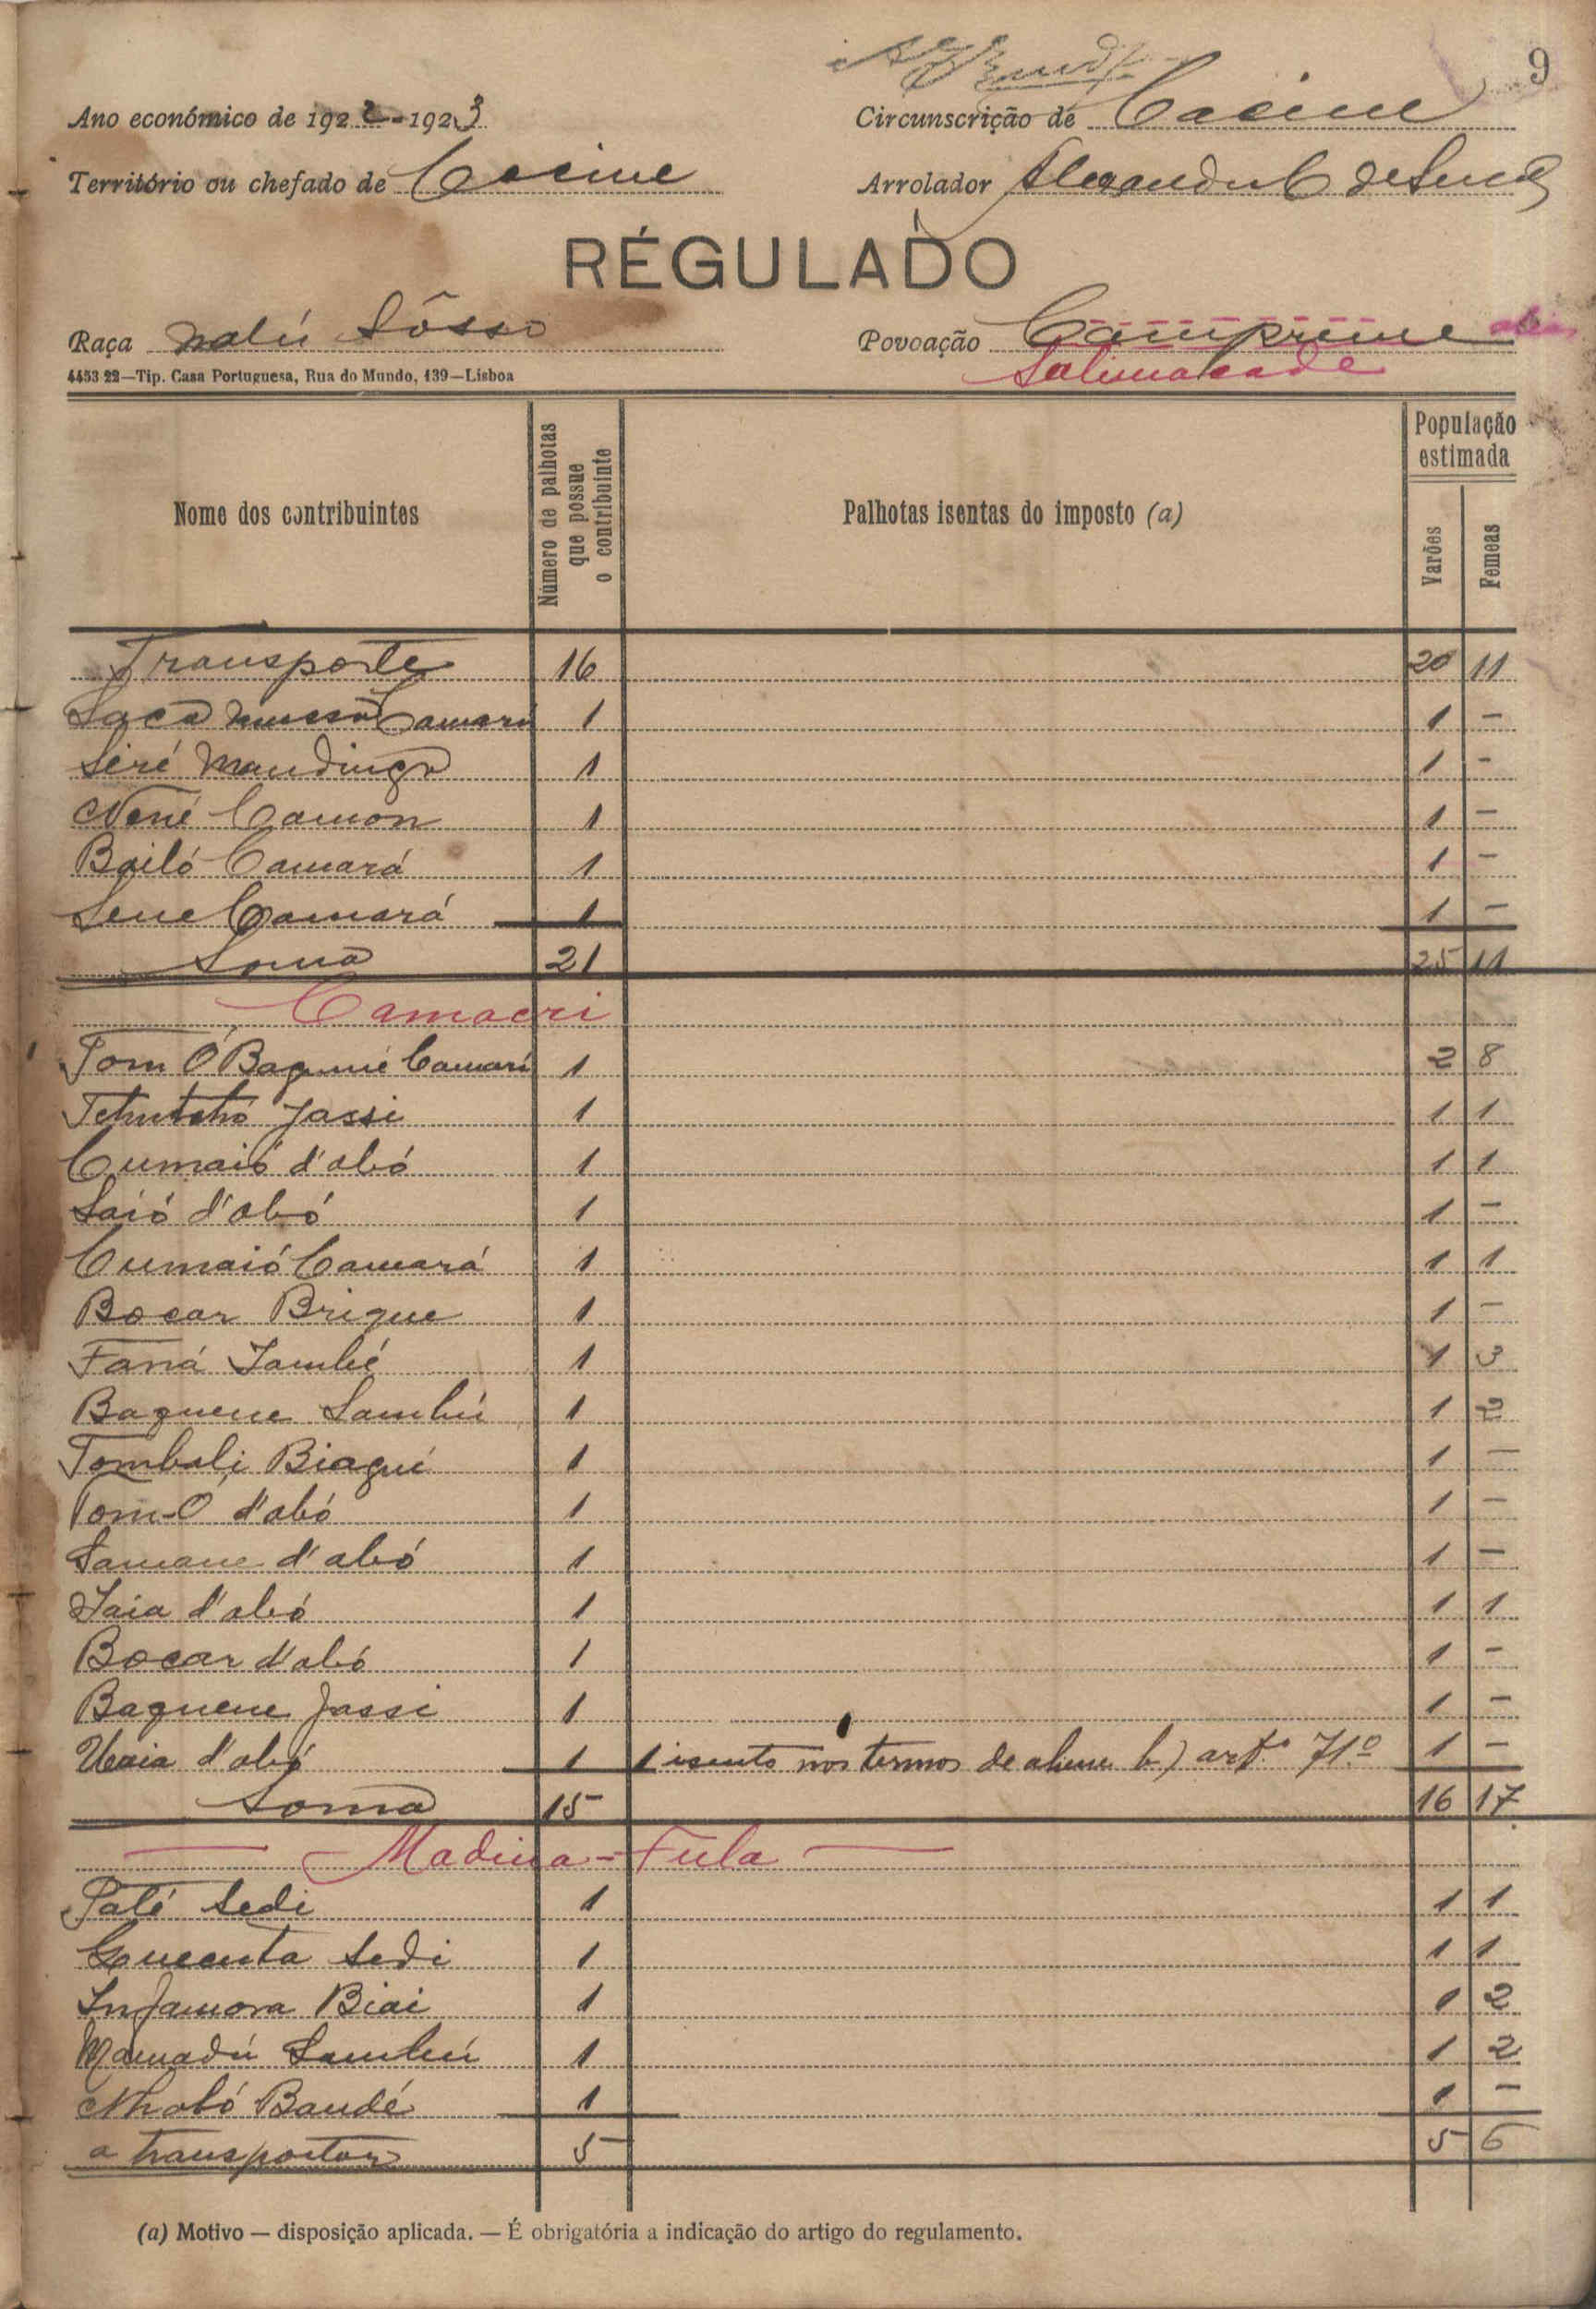 9
Ano económico de 1922-1923
Circunscrição de Cacine
Território ou chefado de Cacine
Arrolador Alexandre C de
RÉGULADO
Raça Nalú Sôsso
Povoação Camprene alias
Salimatade
4453 22—Tip. Casa Portuguesa, Rua do Mundo, 139—Lisboa
Nome dos contribuintes
Número de palhotas que possue o contribuinte
Palhotas isentas do imposto (a)
População estimada
Varões
Femeas
Transporte 16 20 11
Laca Mussá Camará 1 1 -
Seré Mandinga 1 1 -
Nené Camon 1 1 -
Bailó Camará 1 1 -
Sene Camará 1 1 -
Soma 21 25 11
Camacri
Tom Ó Bagné Camará 1 2 8
Tchutchó Jassi 1 1 1
Cumaió d'abó 1 1 1
Saió d'abó 1 1 -
Cumaió Camará 1 1 1
Bocar Brique 1 1 -
Faná Sambú 1 1 3
Baguene Sambú 1 1 2
Tombali Biagui 1 1 -
Tom-Ó d'abó 1 1 -
Samane d'abó 1 1 -
Iaia d'abó 1 1 1
Bocar d'abó 1 1 -
Baguene Jassi 1 1 -
d'abó 1 1 isento nos termos de alinea b) art.º 71º 1 -
Soma 15 16 17
— Madina - Fula —
Paté Sedi 1 1 1
Quecuta Sedi 1 1 1
Infamora Biai 1 1 2
Mamadú Sambú 1 1 2
Nhabó Baudé 1 1 -
a transportar 5 5 6
(a) Motivo — disposição aplicada. — É obrigatória a indicação do artigo do regulamento.